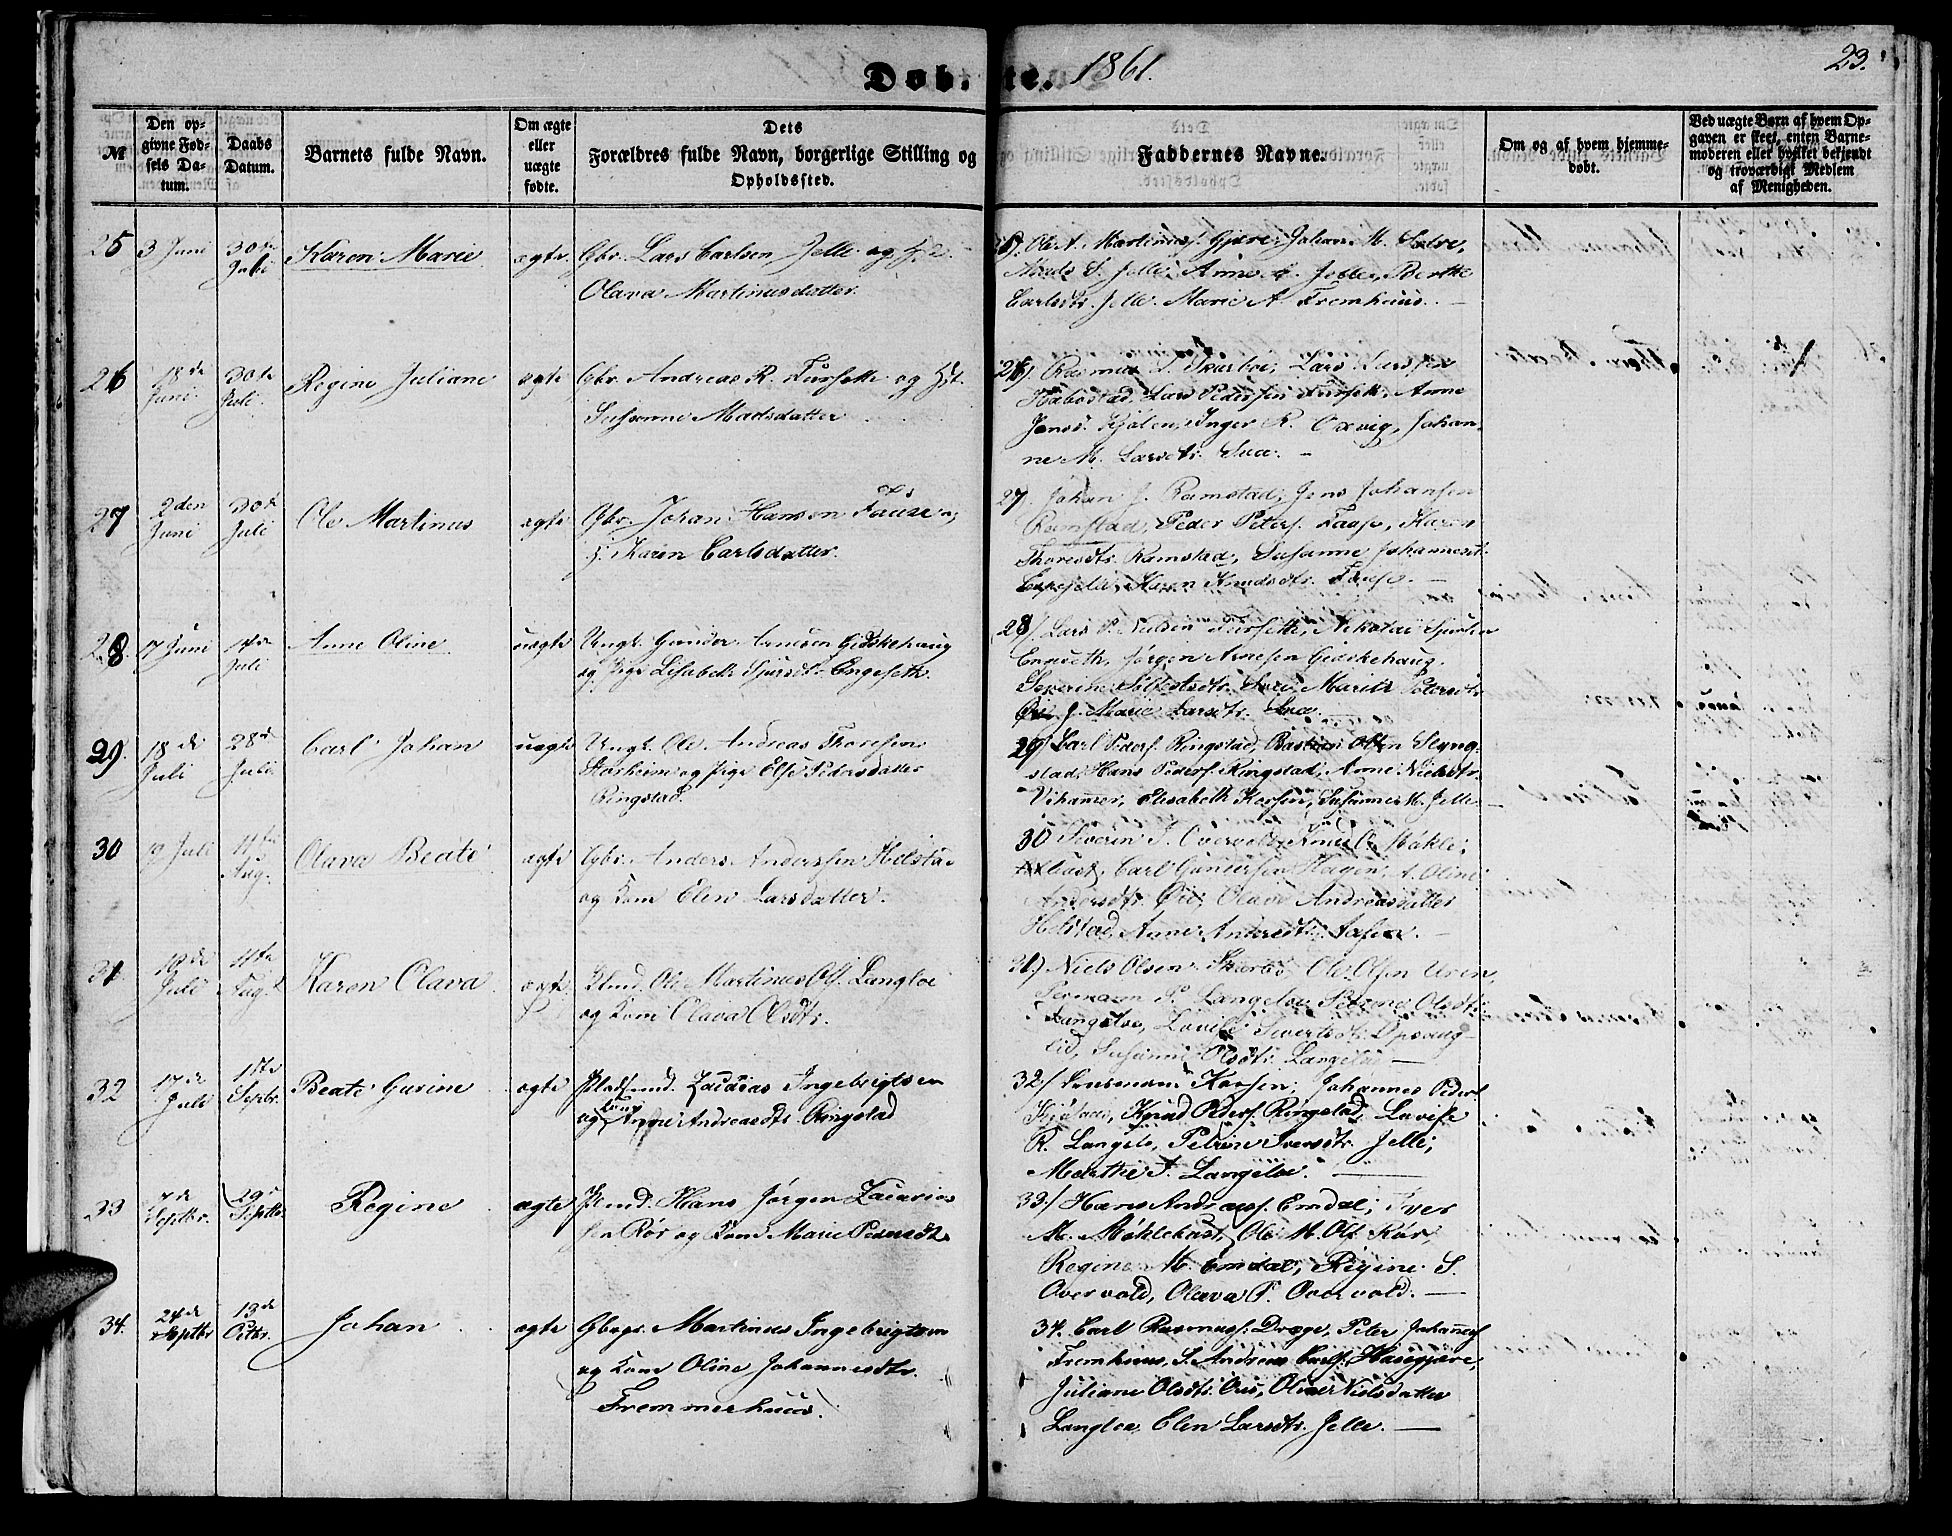 Døbte. 1861. 23.
№
Den op-
givne Fød-
sels Da-
tum.
Daabs
Datum.
Barnets fulde Navn.
Om ægte
eller
uægte
fødte.
Dets
Forældres fulde Navn, borgerlige Stilling og
Opholdssted.
Faddernes Navne.
Om og af hvem hjemme-
døbt.
Ved uægte Børn af hvem Op-
gaven er skeet, enten Barne-
moderen eller hvilket bekjendt
og troværdigt Medlem
af Menigheden.
25 3 Juni 30te Juli Karen Marie ægte Gbr. Lars Carlsen Jelle og
Olava Martinusdatter.
Johan M.
Mads S. Jelle, Anne Jelle, Berthe
Carlsdtr. Jelle. Marie A. Fremhuus. —
26 18de Juni 30te Juli Regine Juliane ægte Gbr. Andreas R. Fursette og Hst.
Susanne Madsdatter
26) Rasmus Lars Larssen
Habostad, Lars Pederssen Furset. Anne
Jensd. Kjølen, Inger R. Oxvig, Johan-
ne M. Larsdtr. —
27 2den Juni 30te Juli Ole Martinus ægte Gbr. Johan Hansen Fause og
H. Karen Carlsdatter.
27) Johan J. Ramstad; Jens Johansen
Ramstad, Peder Peters. Karen
Thoresdtr. Ramstad, Susanne
Karen Knudsdtr. Fause. —
28 17 Juni 14de Juli Anne Oline uægte Ungk. Gunder Arnesen Gidskehaug
og Pige Lisabeth Sjursdtr. Engeseth.
28/ Lars P. Nielsen Fursette, Nikolai Sjursen
Engseth, Jørgen Arnesen Gidskehaug,
Severine Marith Petersdtr.
Øie J. Marie Larsdtr.
29. 18de Juli 28de Juli Carl Johan uægte Ungk. Ole Andreas Thoresen
Storheim og Pige Else Pedersdatter
Ringstad.
29/ Carl Peders. Ringstad, Bastian Olsen
stad, Hans Peders. Ringstad, Anne Nielsdtr.
Vihammer, Elisabeth Susanne M. Jelle —
30 19 Juli 11te Aug. Olava Beate ægte Gbr. Anders Anderssen Helstad
og Kone Elen Larsdatter.
30 Severin I. Overvold, Knud O. Møkle-
bust, Carl Gundersen Hagen, A. Oline
Andersdtr. Øie, Olave Andreasdatter
Helstad, Anne Andersdtr. —
31 18de Juli 11te Aug. Karen Olava ægte Ole Martinus Ols. Langloe
og Kone Olava Olsdtr.
31.) Niels Olsen Ole Olsen Uren,
P. Langeloe, Petrine Olsdtr.
Langeloe, Lovise Sivertsdtr. Opsaug-
lid, Susanne Olsdtr. Langeloe —
32 17de Juli 1ste Septbr. Beate Gurine ægte Pladsmd. Zacarias Ingebrigtsen
og Kone Anne Andreasdtr. Ringstad
32/ Johannes Peders.
Knud Peders. Ringstad, Lovise
R. Langelo, Petrine Iversdtr. Jelle;
Marthe I. Langeloe. —
33 7de Septbr. 29de Septbr. Regine ægte Plmd. Hans Jørgen Zacarias-
sen Rør og Kone Marie Pedersdtr.
33./ Hans Andreass. Emdal; Iver
M. Møklebust, Ole M. Ols. Rør,
Regine M. Emdal, Regine S.
Overvold, Olava P. Overvold. —
34. 24de Septbr 13de Octbr. Johan ægte Gbrgs. Martinus Ingebrigtsen
og Kone Oline Johannesdtr.
Fremmerhuus.
34. Carl Rasmuss. Drage, Peter Johanness.
Fremhuus, S. Andreas Carls. Hassgjære,
Juliane Olsdtr. Øie, Oline Nielsdatter
Langloe, Elen Larsdtr. Jelle. —